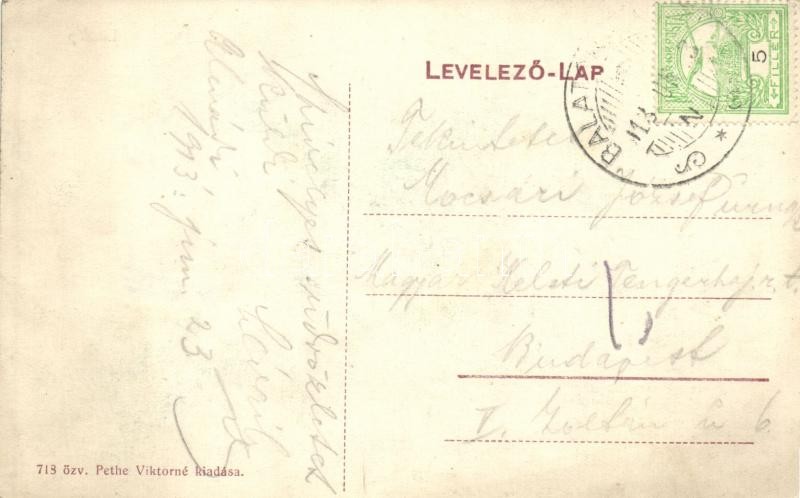 LEVELEZŐ-LAP
5
FILLÉR
BALAT
913
Tekintetes
Mocsári József úrnak
Magyar Keleti Tengerhaj. r. t.
Budapest
V. Zoltán u 6
Szivélyes üdvözletet
küldi
Almádi
1913. jun. 23
718 özv. Pethe Viktorné kiadása.